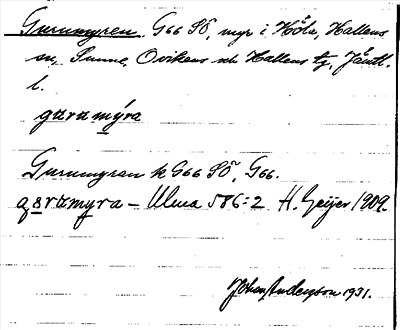 Gurumyren. G66 SÖ, myr i Höla, Hallens
sn, Sunne, Ovikens och Hallens tg, Jämtl.
l.
gurumýra
Gurumyran k G66 SÖ, G66.
gurumyra – Ulma 586:2 H. Geijer 1909.
Johan Anderson 1931.